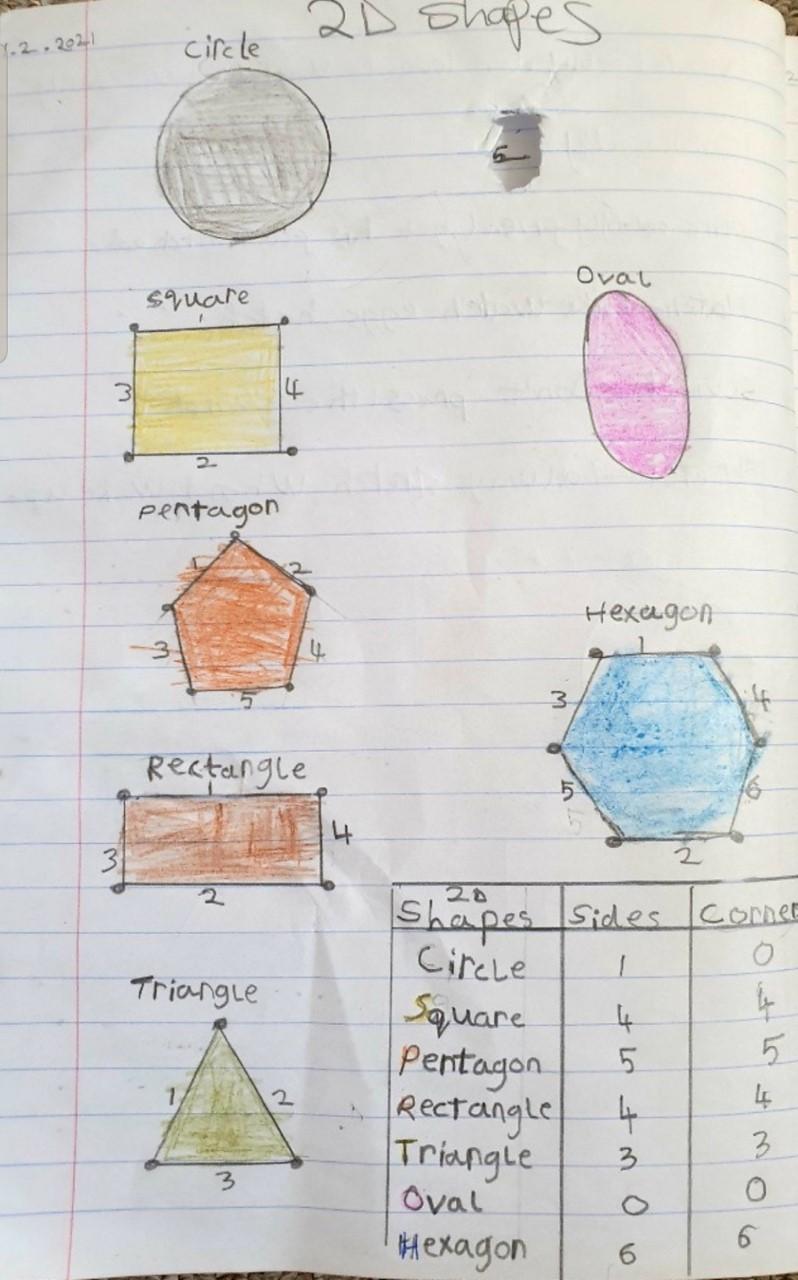 2D Shapes
.2.2021
Circle
5
Square
1
3
4
2
Oval
Pentagon
1
2
3
4
5
Hexagon
1
3
4
5
6
2
Rectangle
1
3
4
2
Triangle
1
2
3
2D Shapes | Sides | Corner
Circle | 1 | 0
Square | 4 | 4
Pentagon | 5 | 5
Rectangle | 4 | 4
Triangle | 3 | 3
Oval | 0 | 0
Hexagon | 6 | 6